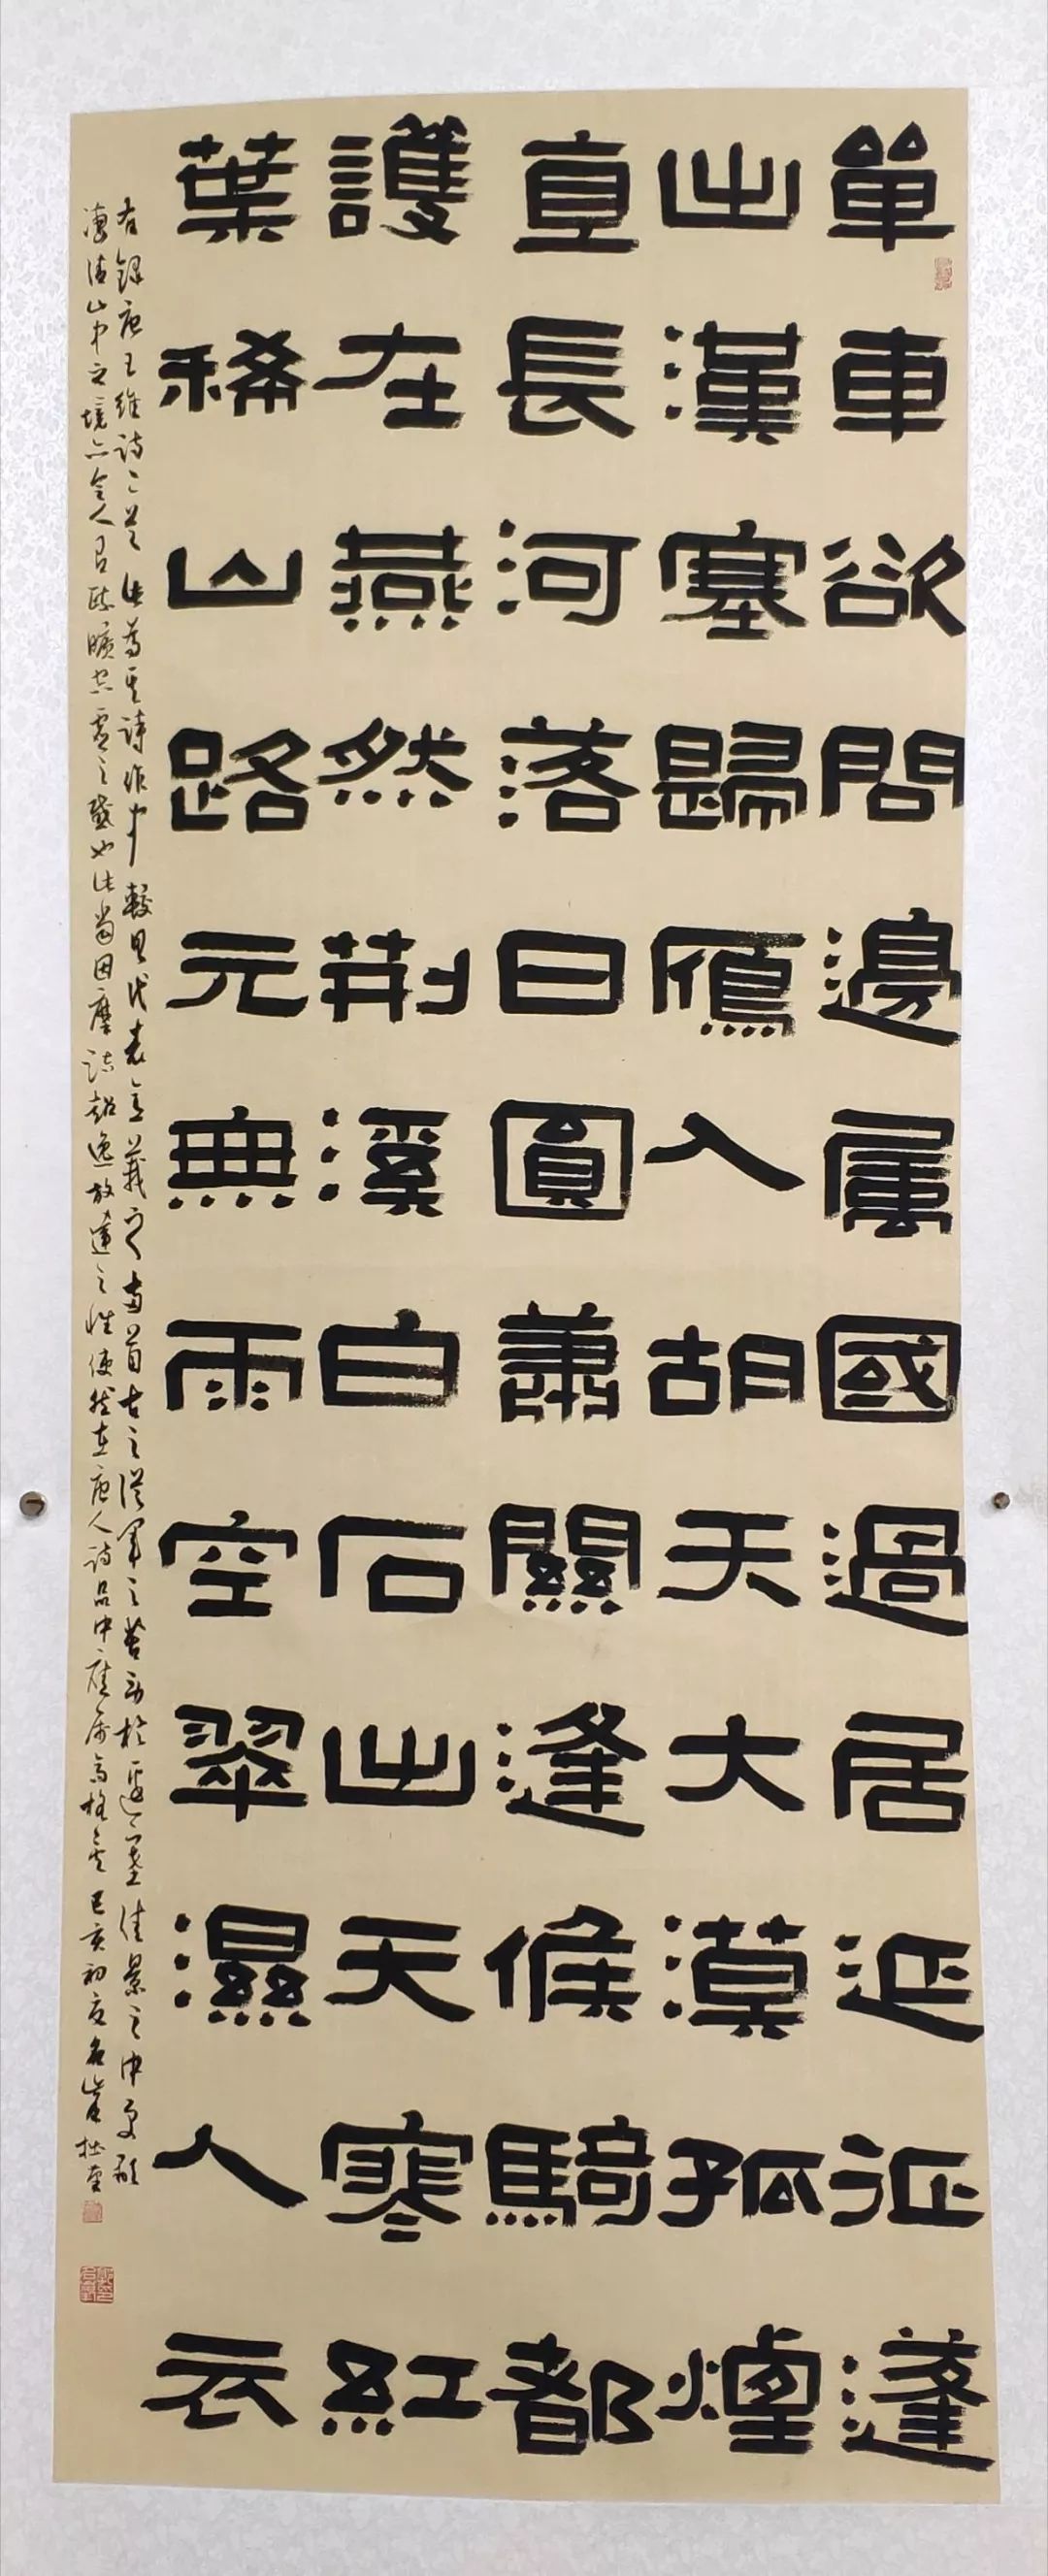 單車欲問邊属國過居延征蓬
出漢塞歸鴈入胡天大漠孤煙
直長河落日圓蕭關逢候騎都
護在燕然荊溪白石出天寒紅
葉稀山路元無雨空翠濕人衣
右録唐王維詩二首此為其詩作中較具代表意義之両首古之從軍之苦於邊塞佳景之中更顯
凄清山中之境亦令人有曠空靈之感也此當因摩詰超逸放達之性使然在唐人詩品中應屬高格矣己亥初夏